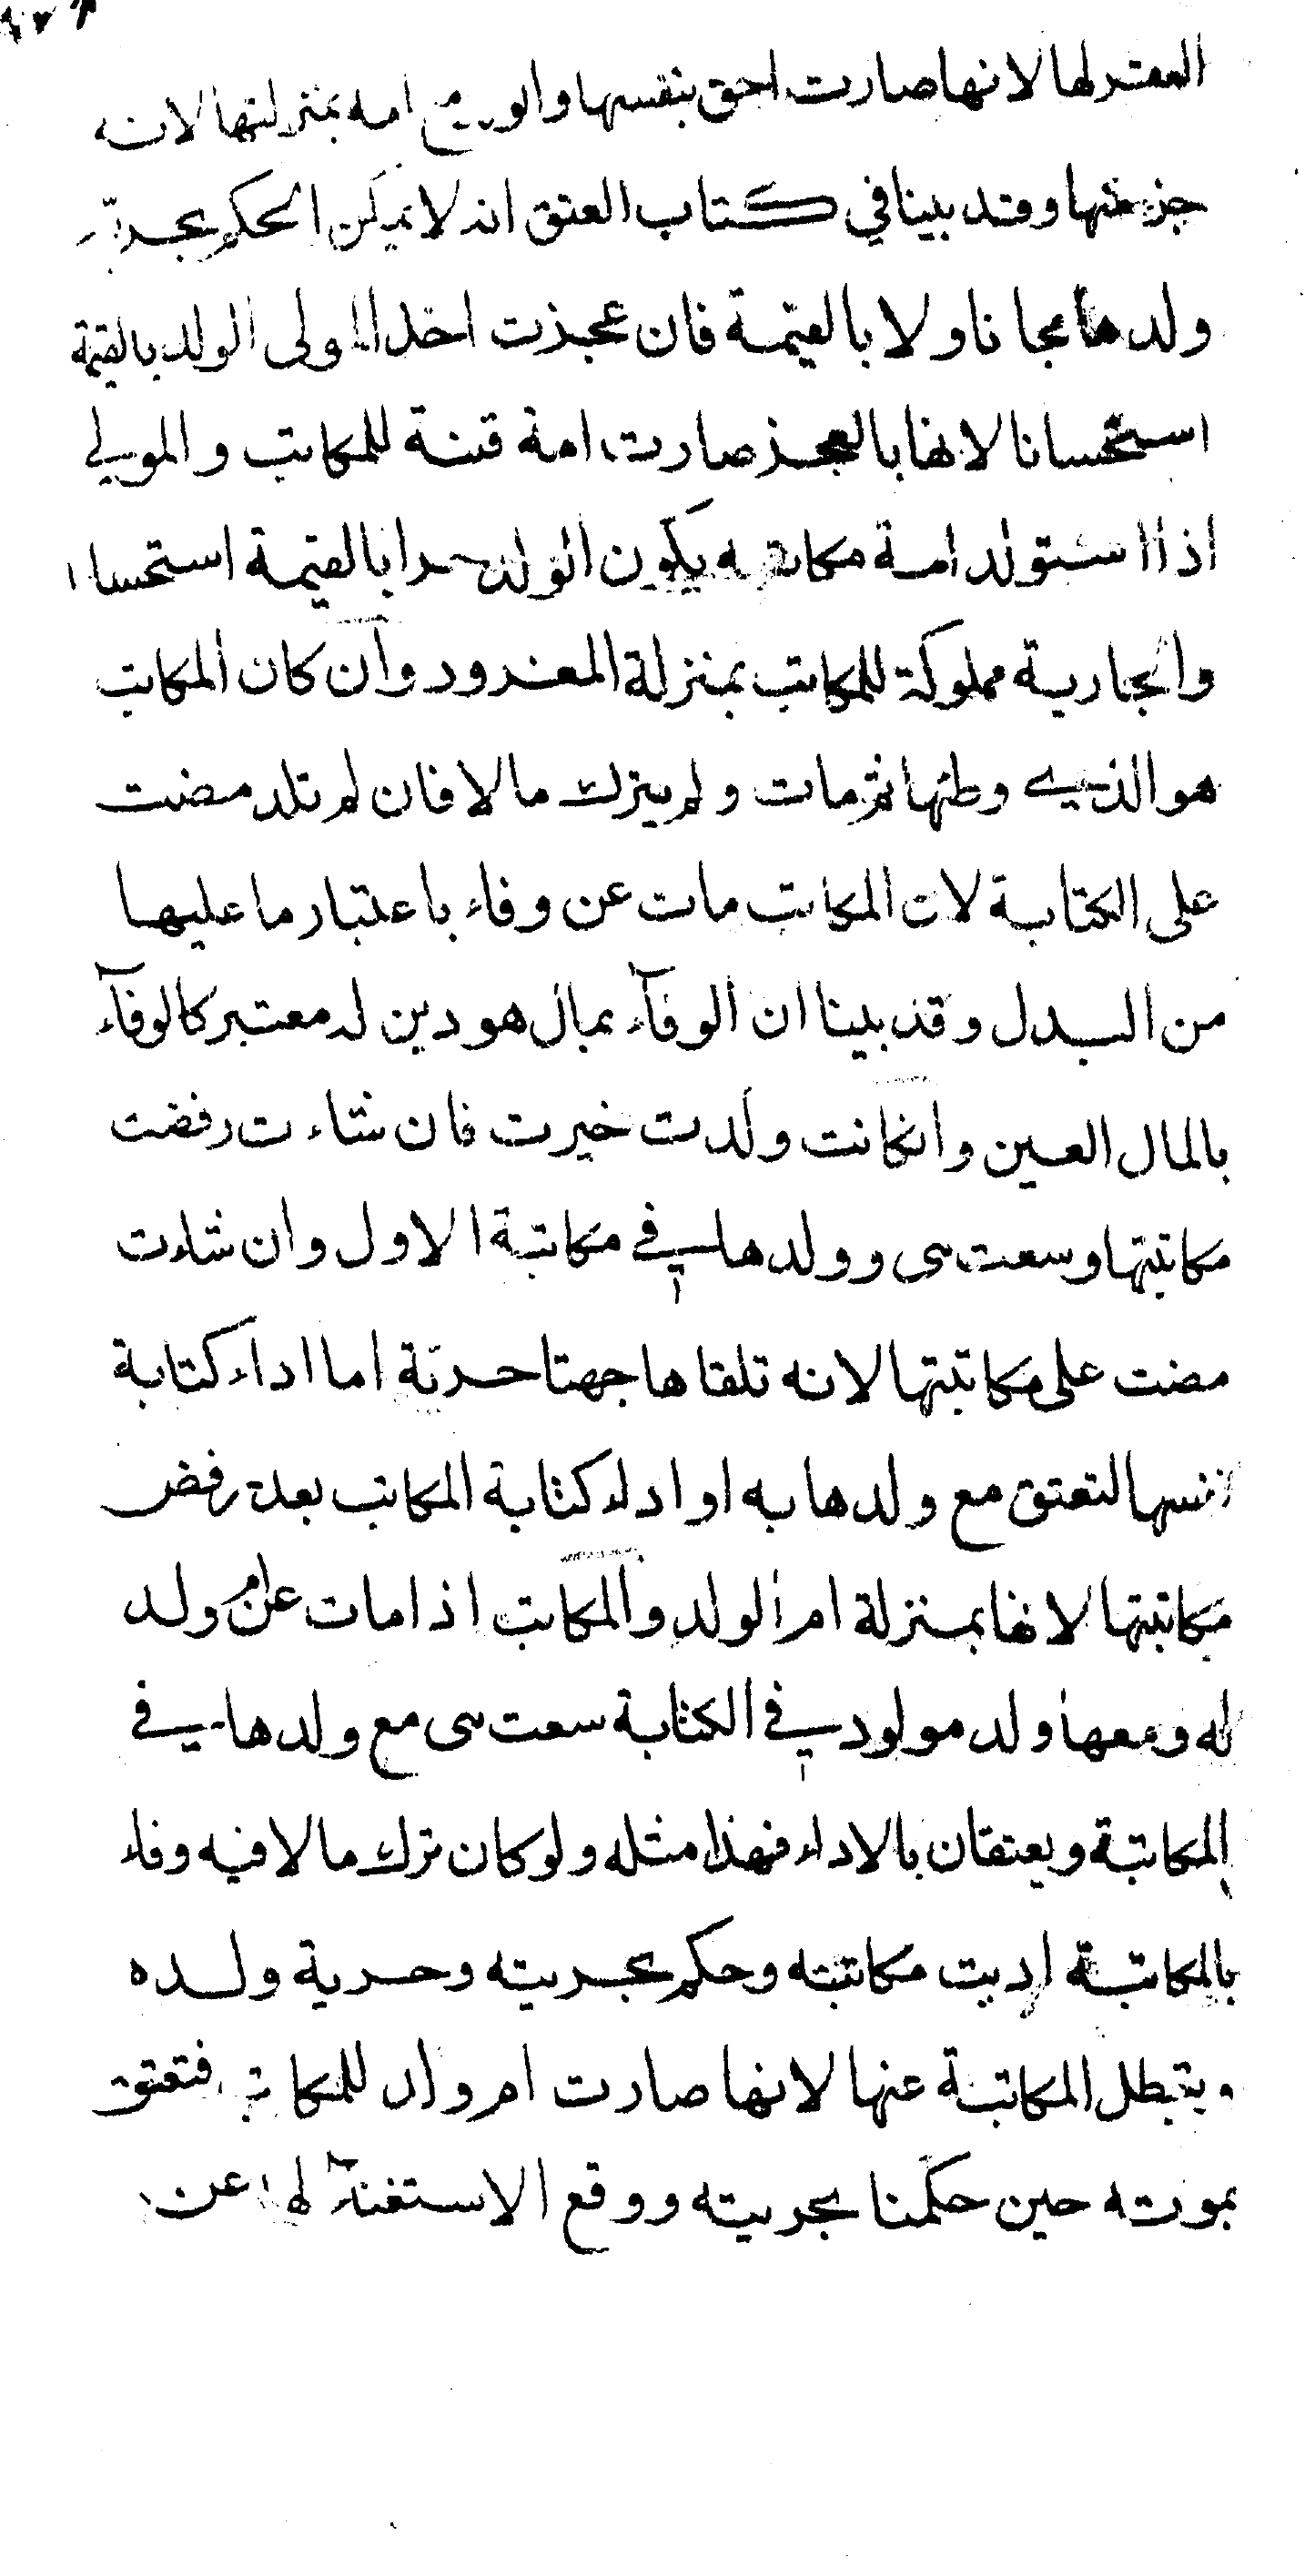 العقر لها لانها صارت احق بنفسها والو مع امه بمنزلتها لانه
جزء منها وقد بينا في كتاب العتق انه لا يمكن الحكم بحرية
ولدها مجانا ولا بالقيمة فان عجزت اخذ المولى الولد بالقيمة
استحسانا لانها بالعجز صارت امة قنة للمكاتب والمولى
اذا استولد امة مكاتبه يكون الولد حرا بالقيمة استحسانا
والجارية مملوكة للمكاتب بمنزلة المغرور وان كان المكاتب
هو الذي وطئها ثم مات ولم يترك مالا فان لم تلد مضت
على الكتابة لان المكاتب مات عن وفاء باعتبار ما عليها
من البدل وقد بينا ان الوفآء بمال هو دين له معتبر كالوفآء
بالمال العين وانكانت ولدت خيرت فان شاءت رفضت
مكاتبتها وسعت هي وولدها في مكاتبة الاول وان شاءت
مضت على مكاتبتها لانه تلقاها جهتا حرية اما اداء كتابة
نفسها لتعتق مع ولدها به او اداء كتابة المكاتب بعد رفض
مكاتبتها لانها بمنزلة ام الولد والمكاتب اذا مات عن ام ولد
له ومعها ولد مولود في الكتابة سعت هي مع ولدها في
المكاتبة ويعتقان بالاداء فهذا مثله ولو كان ترك مالا فيه وفاء
بالمكاتبة اديت مكاتبته وحكم بحريته وحرية ولده
وتبطل المكاتبة عنها لانها صارت ام ولد للمكاتب فتعتق
بموته حين حكمنا بحريته ووقع الاستغنآء لها عن